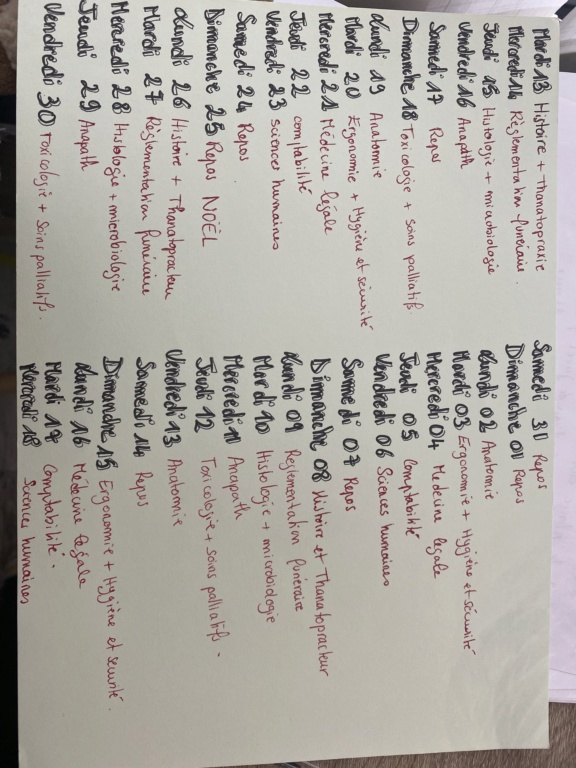 Mardi 13 Histoire + Thanatopraxie
Mercredi 14 Règlementation funéraire.
Jeudi 15 Histologie + microbiologie
Vendredi 16 Anapath
Samedi 17 Repos
Dimanche 18 Toxicologie + soins palliatifs.
Lundi 19 Anatomie
Mardi 20 Ergonomie + Hygiène et sécurité
Mercredi 21 Médecine légale
Jeudi 22 comptabilité
Vendredi 23 sciences humaines
Samedi 24 Repos.
Dimanche 25 Repos NOËL
Lundi 26 Histoire + Thanatopracteur
Mardi 27 Règlementation funéraire
Mercredi 28 Histologie + microbiologie
Jeudi 29 Anapath
Vendredi 30 Toxicologie + Soins palliatifs.
Samedi 31 Repos
Dimanche 01 Repos
Lundi 02 Anatomie
Mardi 03 Ergonomie + Hygiène et sécurité
Mercredi 04 Médecine légale
Jeudi 05 Comptabilité
Vendredi 06 Sciences humaines
Samedi 07 Repos
Dimanche 08 Histoire et Thanatopracteur
Lundi 09 Règlementation funéraire
Mardi 10 Histologie + microbiologie
Mercredi 11 Anapath
Jeudi 12 Toxicologie + soins palliatifs.
Vendredi 13 Anatomie
Samedi 14 Repos
Dimanche 15 Ergonomie + Hygiène et sécurité.
Lundi 16 Médecine légale
Mardi 17 Comptabilité.
Mercredi 18 Sciences humaines